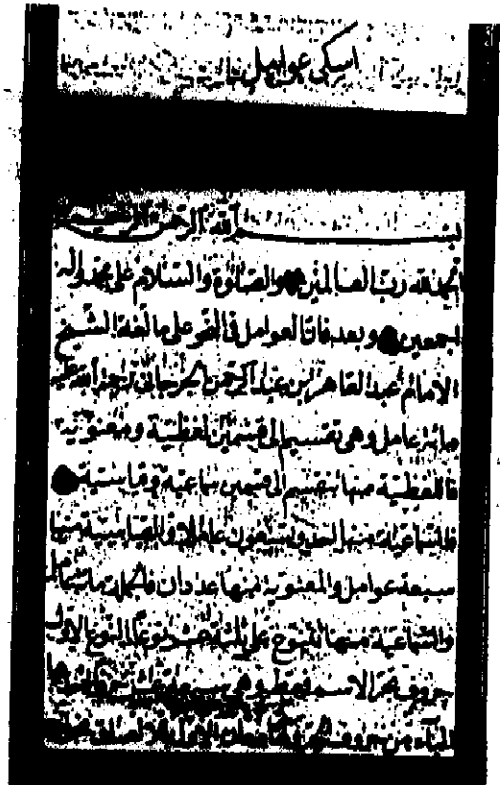 اسكى عوامل
بسم الله الرحمن الرحيم
الحمد لله رب العالمين والصلوة والسلام على محمد واله
اجمعين وبعد فان العوامل فى النحو على ما الفه الشيخ
الامام عبد القاهر ابن عبد الرحمن الجرجانى رحمة الله عليه
مائة عامل وهى تنقسم الى قسمين لفظية ومعنوية
فاللفظية منها تنقسم الى قسمين سماعية وقياسية
فالسماعية منها احد وتسعون عاملا والقياسية منها
سبعة عوامل والمعنوية منها عددان فالجملة مائة عامل
والسماعية منها تتنوع على ثلثة عشر نوعا النوع الاول
حروف تجر الاسم فقط وهى سبعة عشر حرفا
الباء من حروف الجر